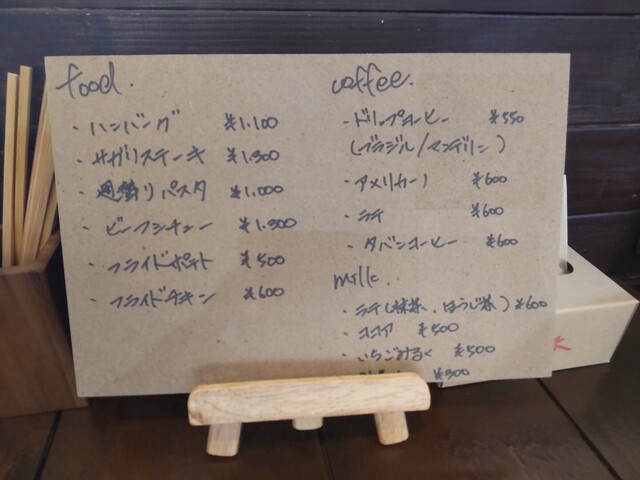 food.
・ハンバーグ ¥1.100
・サガリステーキ ¥1.300
・週替りパスタ ¥1.000
・ビーフシチュー ¥1.300
・フライドポテト ¥500
・フライドチキン ¥600
coffee.
・ドリップコーヒー ¥550
(ブラジル/マンデリン)
・アメリカーノ ¥600
・ラテ ¥600
・タバンコーヒー ¥600
milk.
・ラテ(抹茶、ほうじ茶) ¥600
・ココア ¥500
・いちごみるく ¥500
¥300